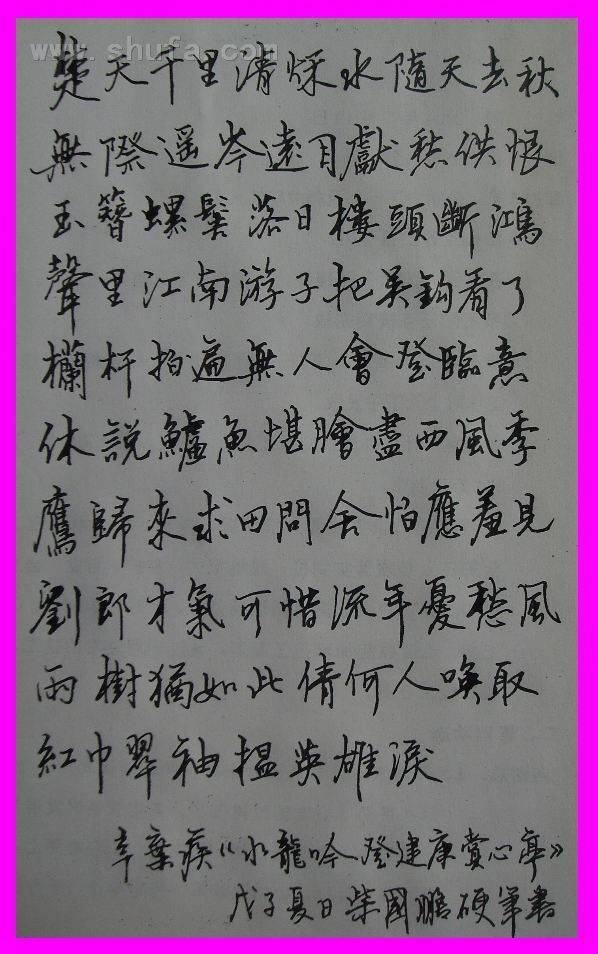 www.shufa.com
楚天千里清秌水隨天去秋
無際遥岑遠目獻愁供恨
玉簪螺髻落日樓頭斷鴻
聲里江南游子把吴鈎看了
欄杆拍遍無人會登臨意
休説鱸魚堪膾盡西風季
鷹歸來求田問舍怕應羞見
劉郎才氣可惜流年憂愁風
雨樹猶如此倩何人唤取
紅巾翠袖揾英雄淚
辛棄疾《水龍吟登建康賞心亭》
戊子夏日柴國鵬硬筆書